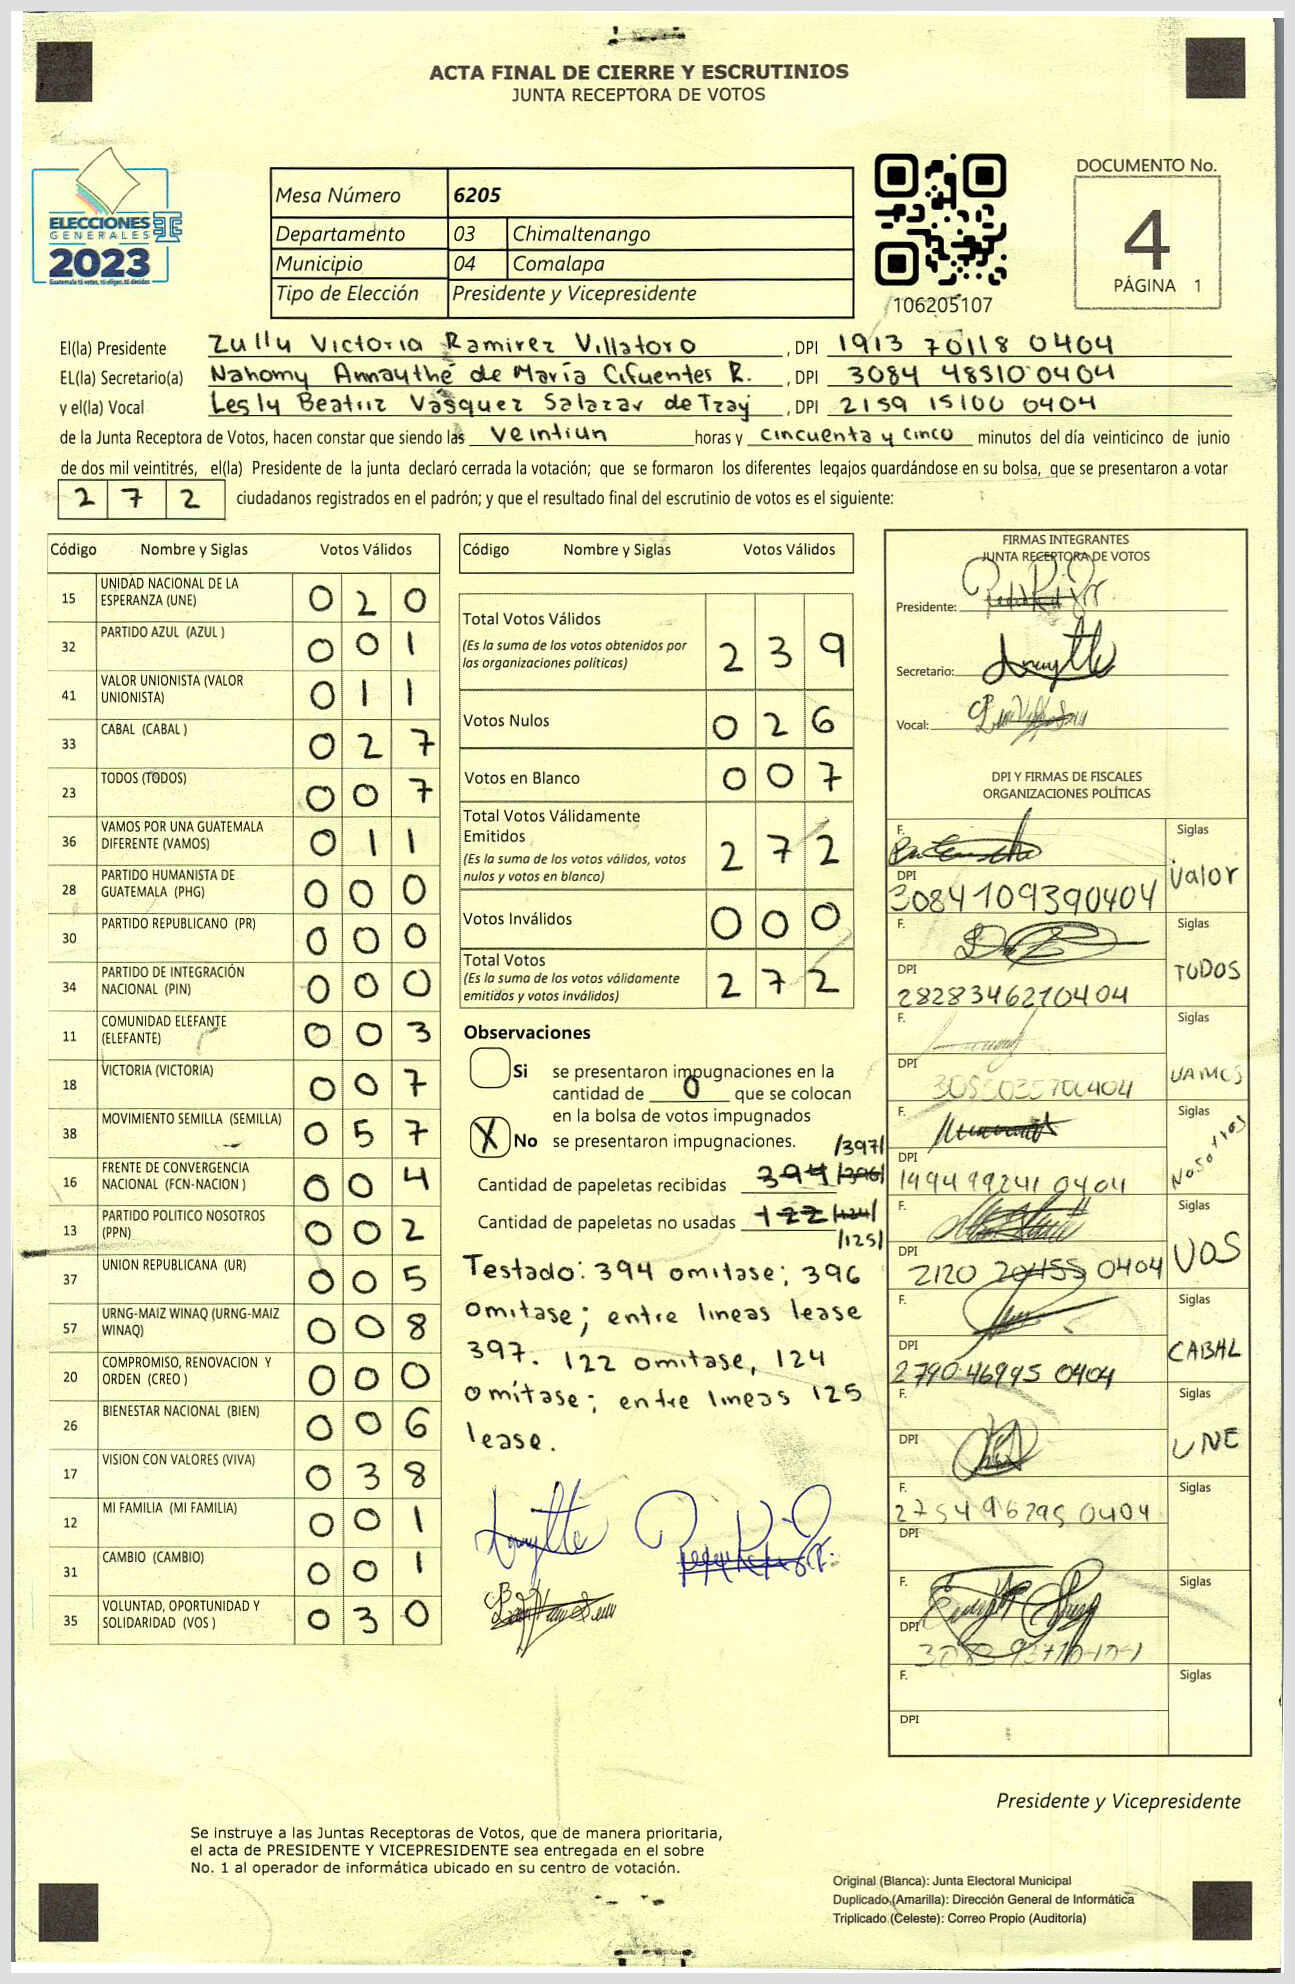 ACTA FINAL DE CIERRE Y ESCRUTINIOS
JUNTA RECEPTORA DE VOTOS
ELECCIONES
GENERALES
2023
Guatemala tú votas, tú eliges, tú decides
Mesa Número 6205
Departamento 03 Chimaltenango
Municipio 04 Comalapa
Tipo de Elección Presidente y Vicepresidente
106205107
DOCUMENTO No.
4
PÁGINA 1
El(la) Presidente Zully Victoria Ramirez Villatoro, DPI 1913 70118 0404
EL(la) Secretario(a) Nahomy Annaythé de María Cifuentes R., DPI 3084 48510 0404
y el(la) Vocal Lesly Beatriz Vásquez Salazar de Tzay, DPI 2159 15100 0404
de la Junta Receptora de Votos, hacen constar que siendo las veintiun horas y cincuenta y cinco minutos del día veinticinco de junio
de dos mil veintitrés, el(la) Presidente de la junta declaró cerrada la votación; que se formaron los diferentes legajos guardándose en su bolsa, que se presentaron a votar
272 ciudadanos registrados en el padrón; y que el resultado final del escrutinio de votos es el siguiente:
Código Nombre y Siglas Votos Válidos
15 UNIDAD NACIONAL DE LA ESPERANZA (UNE) 0 2 0
32 PARTIDO AZUL (AZUL ) 0 0 1
41 VALOR UNIONISTA (VALOR UNIONISTA) 0 1 1
33 CABAL (CABAL ) 0 2 7
23 TODOS (TODOS) 0 0 7
36 VAMOS POR UNA GUATEMALA DIFERENTE (VAMOS) 0 1 1
28 PARTIDO HUMANISTA DE GUATEMALA (PHG) 0 0 0
30 PARTIDO REPUBLICANO (PR) 0 0 0
34 PARTIDO DE INTEGRACIÓN NACIONAL (PIN) 0 0 0
11 COMUNIDAD ELEFANTE (ELEFANTE) 0 0 3
18 VICTORIA (VICTORIA) 0 0 7
38 MOVIMIENTO SEMILLA (SEMILLA) 0 5 7
16 FRENTE DE CONVERGENCIA NACIONAL (FCN-NACION ) 0 0 4
13 PARTIDO POLITICO NOSOTROS (PPN) 0 0 2
37 UNION REPUBLICANA (UR) 0 0 5
57 URNG-MAIZ WINAQ (URNG-MAIZ WINAQ) 0 0 8
20 COMPROMISO, RENOVACION Y ORDEN (CREO ) 0 0 0
26 BIENESTAR NACIONAL (BIEN) 0 0 6
17 VISION CON VALORES (VIVA) 0 3 8
12 MI FAMILIA (MI FAMILIA) 0 0 1
31 CAMBIO (CAMBIO) 0 0 1
35 VOLUNTAD, OPORTUNIDAD Y SOLIDARIDAD (VOS ) 0 3 0
Código Nombre y Siglas Votos Válidos
Total Votos Válidos 2 3 9
(Es la suma de los votos obtenidos por
las organizaciones políticas)
Votos Nulos 0 2 6
Votos en Blanco 0 0 7
Total Votos Válidamente
Emitidos 2 7 2
(Es la suma de los votos válidos, votos
nulos y votos en blanco)
Votos Inválidos 0 0 0
Total Votos 2 7 2
(Es la suma de los votos válidamente
emitidos y votos inválidos)
Observaciones
Si se presentaron impugnaciones en la
cantidad de 0 que se colocan
en la bolsa de votos impugnados
X No se presentaron impugnaciones.
/397/
Cantidad de papeletas recibidas 394 /396/
Cantidad de papeletas no usadas 122 /124/
/125/
Testado: 394 omitase; 396
omitase; entre lineas lease
397. 122 omitase, 124
omítase; entre lineas 125
lease.
FIRMAS INTEGRANTES
JUNTA RECEPTORA DE VOTOS
Presidente:
Secretario:
Vocal:
DPI Y FIRMAS DE FISCALES
ORGANIZACIONES POLÍTICAS
F. Siglas
DPI Valor
3084109390404
F. Siglas
DPI TODOS
2828346210404
F. Siglas
DPI VAMOS
F. Siglas
DPI Nosotros
1994 99241 0404
F. Siglas
DPI VOS
2120 20455 0404
F. Siglas
DPI CABAL
2790 46995 0404
F. Siglas
DPI UNE
F. Siglas
2754 96795 0404
DPI
F. Siglas
DPI
F. Siglas
DPI
Presidente y Vicepresidente
Se instruye a las Juntas Receptoras de Votos, que de manera prioritaria,
el acta de PRESIDENTE Y VICEPRESIDENTE sea entregada en el sobre
No. 1 al operador de informática ubicado en su centro de votación.
Original (Blanca): Junta Electoral Municipal
Duplicado (Amarilla): Dirección General de Informática
Triplicado (Celeste): Correo Propio (Auditoría)